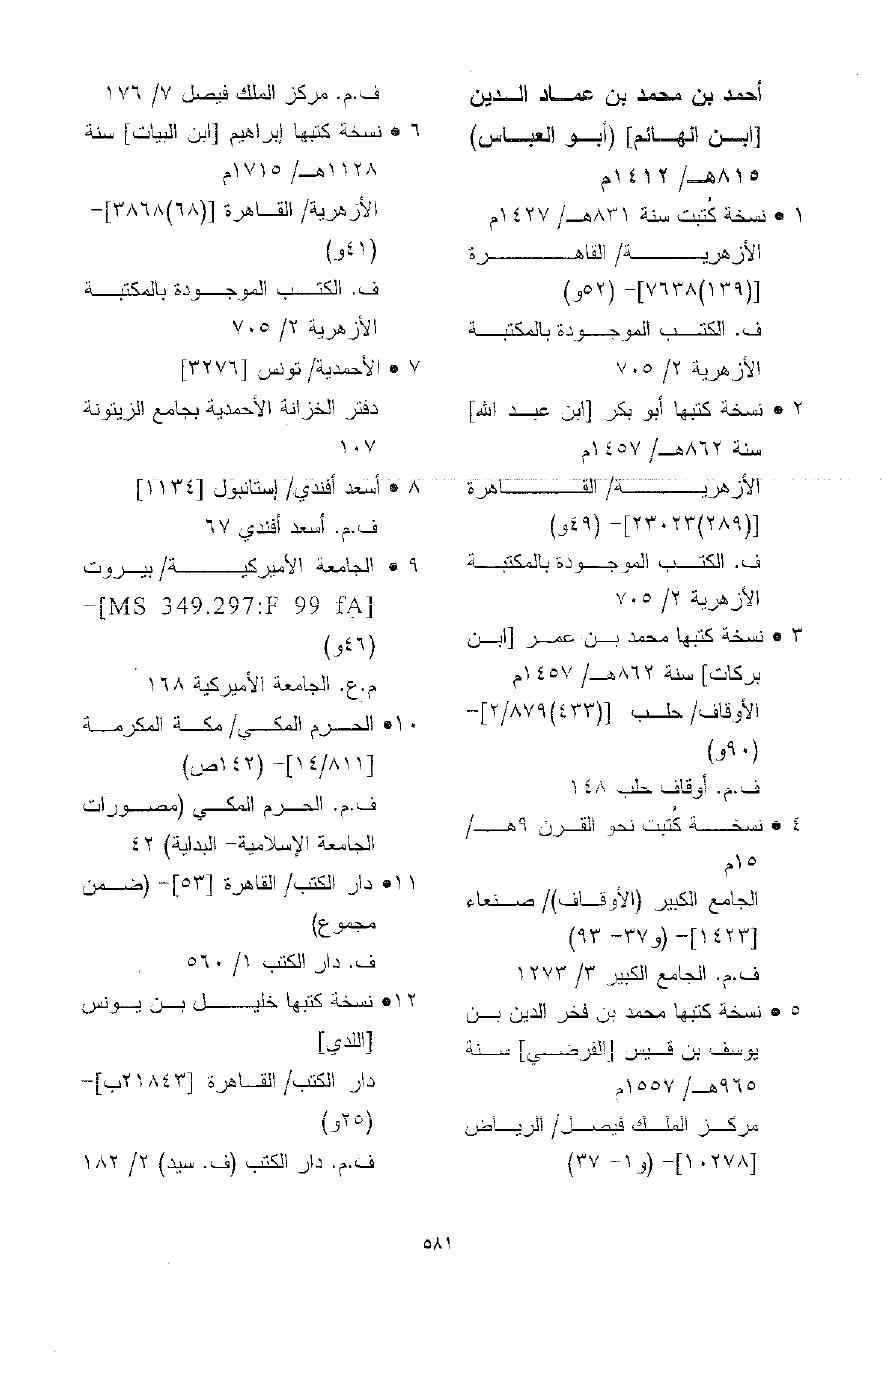 أحمد بن محمد بن عماد الدين
[ابن الهائم] (أبو العباس)
٨١٥هـ/ ١٤١٢م
١ • نسخة كُتبت سنة ٨٣١هـ/ ١٤٢٧م
الأزهرية/ القاهرة
[(١٣٩)٧٦٣٨]- (٥٢و)
ف. الكتب الموجودة بالمكتبة
الأزهرية ٢/ ٧٠٥
٢ • نسخة كتبها أبو بكر [ابن عبد الله]
سنة ٨٦٢هـ/ ١٤٥٧م
الأزهرية/ القاهرة
[(٢٨٩)٢٣٠٢٣]- (٤٩و)
ف. الكتب الموجودة بالمكتبة
الأزهرية ٢/ ٧٠٥
٣ • نسخة كتبها محمد بن عمر [ابن
بركات] سنة ٨٦٢هـ/ ١٤٥٧م
الأوقاف/ حلب [(٤٣٣)٢/٨٧٩]-
(٩٠و)
ف.م. أوقاف حلب ١٤٨
٤ • نسخة كُتبت نحو القرن ٩هـ/
١٥م
الجامع الكبير (الأوقاف)/ صنعاء
[١٤٢٣]- (و٣٧- ٩٣)
ف.م. الجامع الكبير ٣/ ١٢٧٣
٥ • نسخة كتبها محمد بن فخر الدين بن
يوسف بن قيس [الفرضي] سنة
٩٦٥هـ/ ١٥٥٧م
مركز الملك فيصل/ الرياض
[١٠٢٧٨]- (و١- ٣٧)
ف.م. مركز الملك فيصل ٧/ ١٧٦
٦ • نسخة كتبها إبراهيم [ابن البيات] سنة
١١٢٨هـ/ ١٧١٥م
الأزهرية/ القاهرة [(٦٨)٣٨٦٨]-
(٤١و)
ف. الكتب الموجودة بالمكتبة
الأزهرية ٢/ ٧٠٥
٧ • الأحمدية/ تونس [٣٢٧٦]
دفتر الخزانة الأحمدية بجامع الزيتونة
١٠٧
٨ • أسعد أفندي/ إستانبول [١١٣٤]
ف.م. أسعد أفندي ٦٧
٩ • الجامعة الأميركية/ بيروت
[MS 349.297:F 99 fA]-
(٤٦و)
م.ع. الجامعة الأميركية ١٦٨
١٠• الحرم المكي/ مكة المكرمة
[١٤/٨١١]- (١٤٢ص)
ف.م. الحرم المكي (مصورات
الجامعة الإسلامية- البداية) ٤٢
١١• دار الكتب/ القاهرة [٥٣]- (ضمن
مجموع)
ف. دار الكتب ١/ ٥٦٠
١٢• نسخة كتبها خليل بن يونس
[اللدي]
دار الكتب/ القاهرة [٢١٨٤٣ب]-
(٢٥و)
ف.م. دار الكتب (ف. سيد) ٢/ ١٨٢
٥٨١